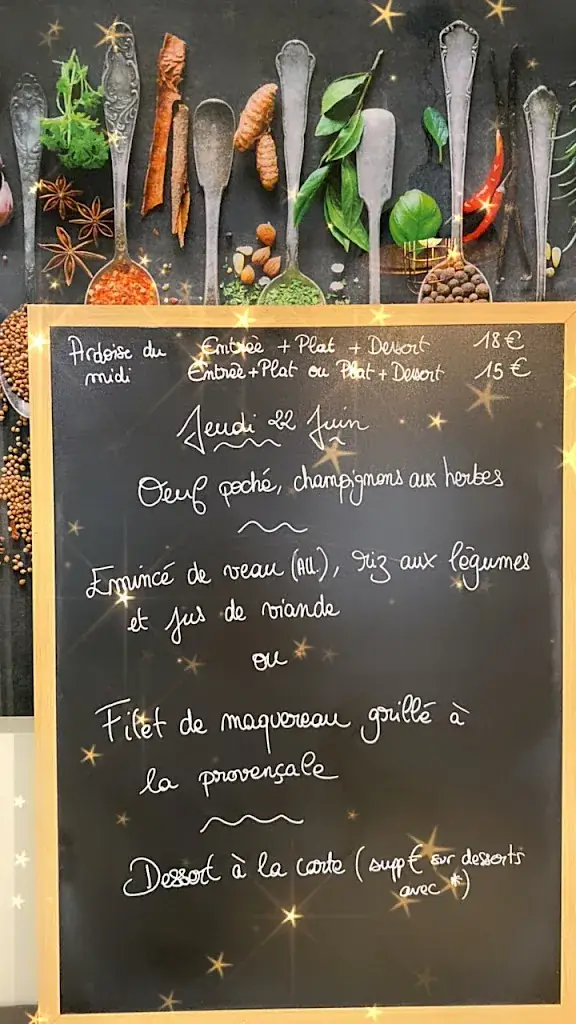 Ardoise du Entrée + Plat + Dessert 18 €
midi Entrée+Plat ou Plat + Dessert 15 €
Jeudi 22 Juin
Oeuf poché, champignons aux herbes
Emincé de veau (All.), riz aux légumes
et jus de viande
ou
Filet de maquereau grillé à
la provençale
Dessert à la carte (supp € sur desserts
avec *)